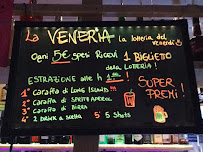 La VENERIA la lotteria del venerdì
Ogni 5€ spesi RICEVI 1 BIGLIETTO
della LOTTERIA!
ESTRAZIONE alle h 1
SUPER
PREMI!
1° Caraffa di LONG ISLAND
2° Caraffa di SPRITZ APEROL
3° Caraffa di BIRRA
4° 2 DRINK a scelta 5° 5 Shots